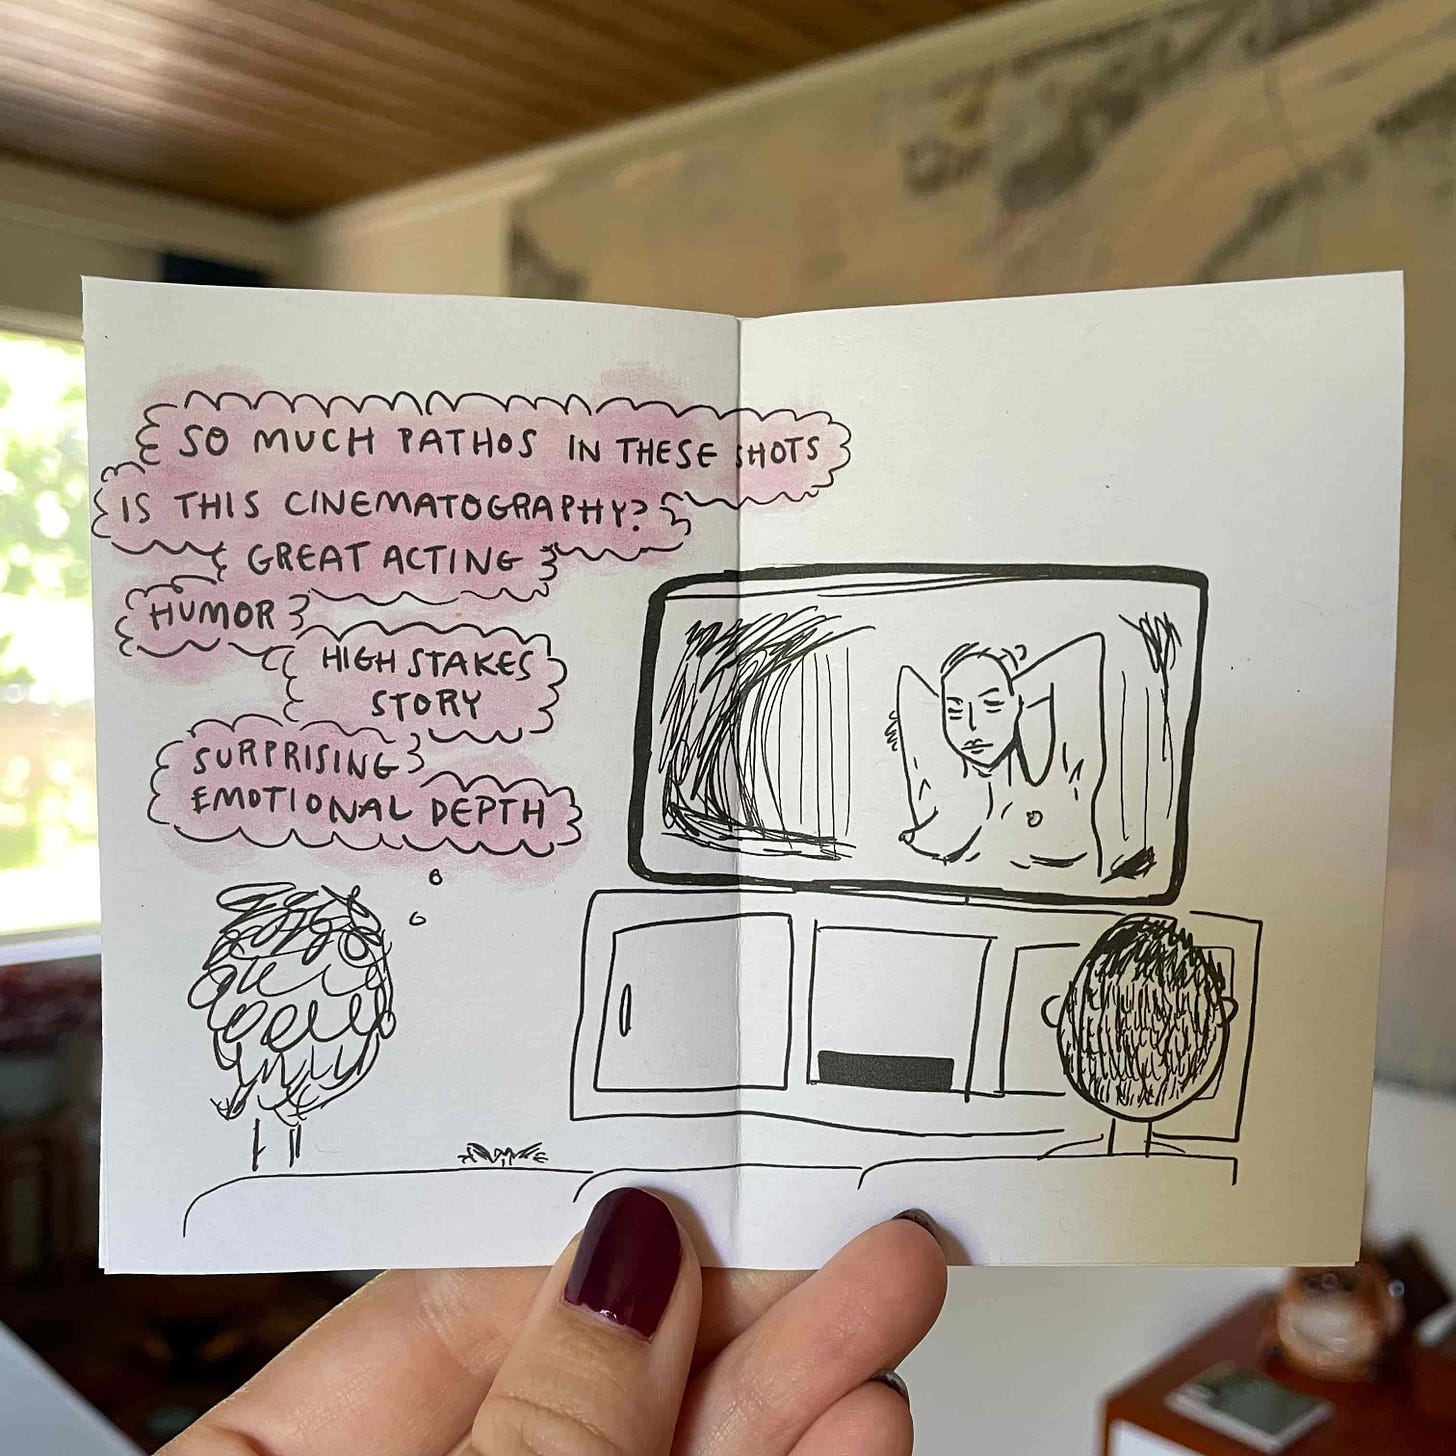 SO MUCH PATHOS IN THESE SHOTS
IS THIS CINEMATOGRAPHY?
GREAT ACTING
HUMOR
HIGH STAKES
STORY
SURPRISING
EMOTIONAL DEPTH